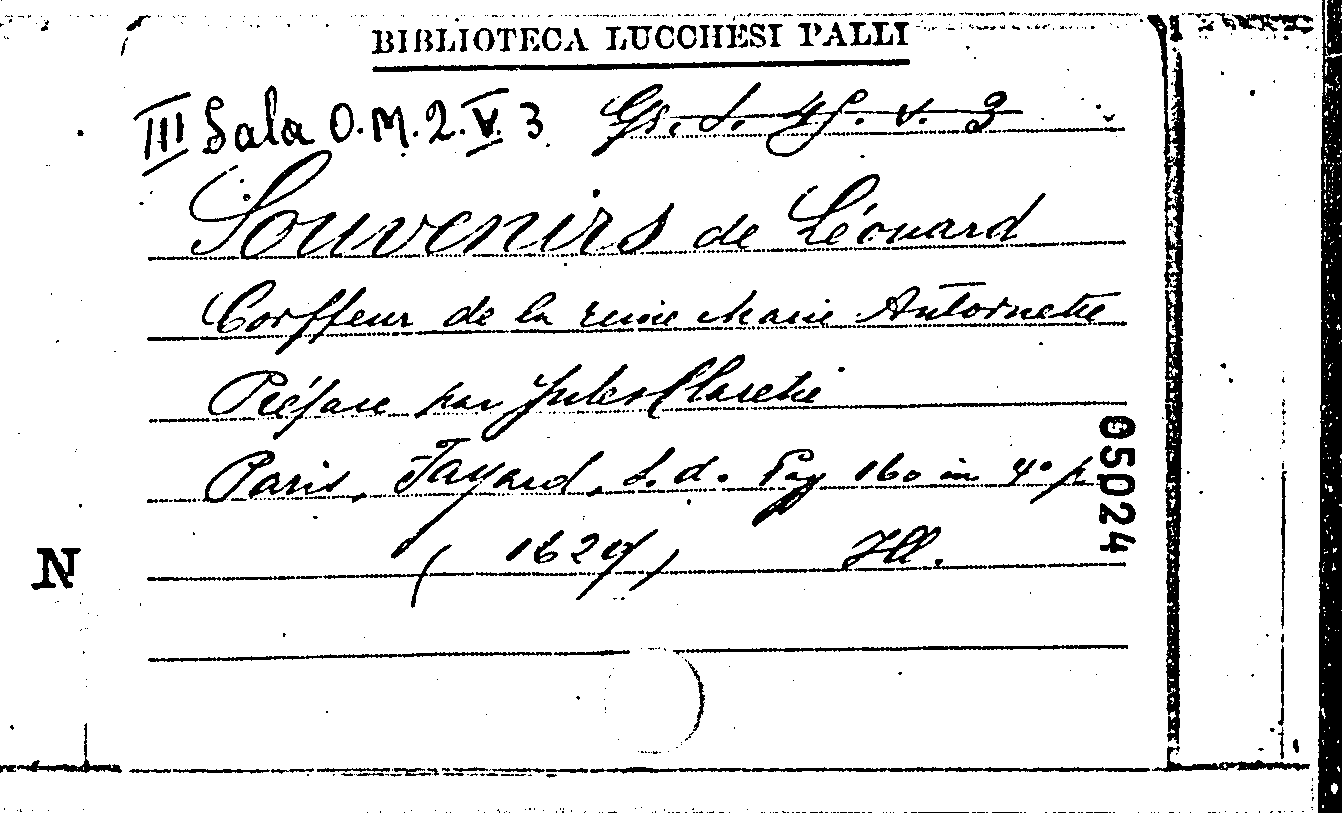 BIBLIOTECA LUCCHESI PALLI
III Sala O.M.2.V.3 Gr. S. 4S. v. 3
Souvenirs de Léonard
Coiffeur de la reine Marie Antoinette
Préface par Jules Claretie
Paris, Fayard, s.d. Pag 160 in 4° p
( 1629 ) Ill.
05024
N